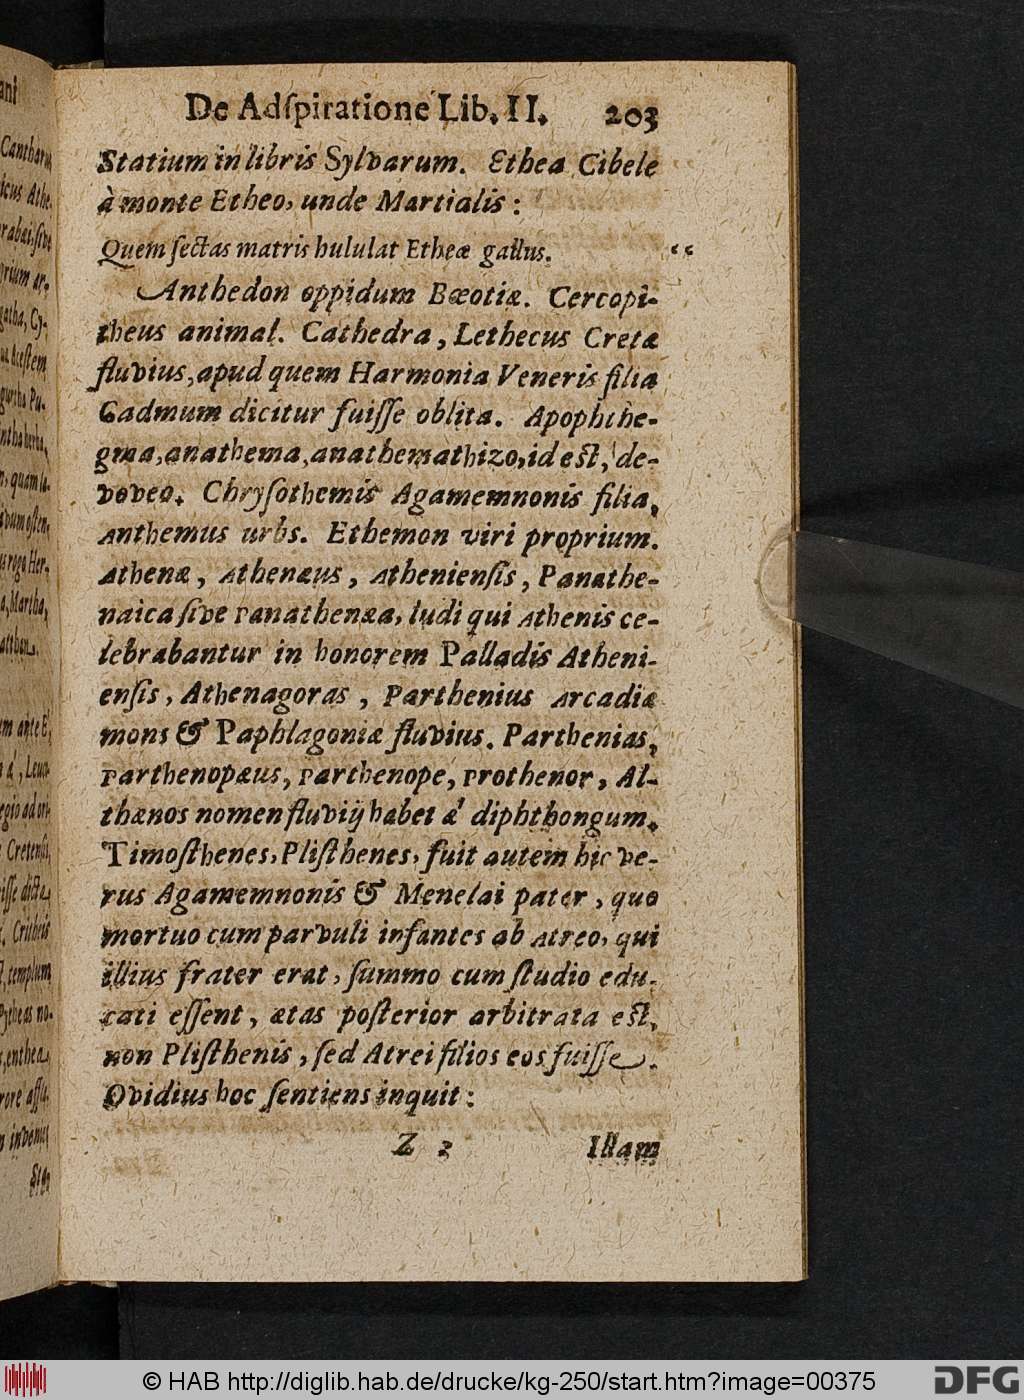 De Adſpiratione Lib. II. 203
Statium in libris Sylvarum. Ethea Cibele
à monte Etheo, unde Martialis:
Quem ſectas matris hululat Etheæ gallus. “
Anthedon oppidum Bœotiæ. Cercopi-
theus animal. Cathedra, Lethecus Cretæ
fluvius, apud quem Harmonia Veneris filia
Cadmum dicitur fuiſſe oblita. Apophthe-
gma, anathema, anathemathizo, id eſt, de-
voveo. Chryſothemis Agamemnonis filia,
Anthemus urbs. Ethemon viri proprium.
Athenæ, Athenæus, Athenienſis, Panathe-
naica ſive Panathenæa, ludi qui Athenis ce-
lebrabantur in honorem Palladis Atheni-
enſis, Athenagoras, Parthenius Arcadiæ
mons & Paphlagoniæ fluvius. Parthenias,
Parthenopæus, Parthenope, Prothenor, Al-
thænos nomen fluvij habet æ diphthongum.
Timoſthenes, Pliſthenes, fuit autem hic ve-
rus Agamemnonis & Menelai pater, quo
mortuo cum parvuli infantes ab Atreo, qui
illius frater erat, ſummo cum ſtudio edu-
cati eſſent, ætas poſterior arbitrata eſt,
non Pliſthenis, ſed Atrei filios eos fuiſſe.
Ovidius hoc ſentiens inquit:
Z 2 Illam
© HAB http://diglib.hab.de/drucke/kg-250/start.htm?image=00375
DFG